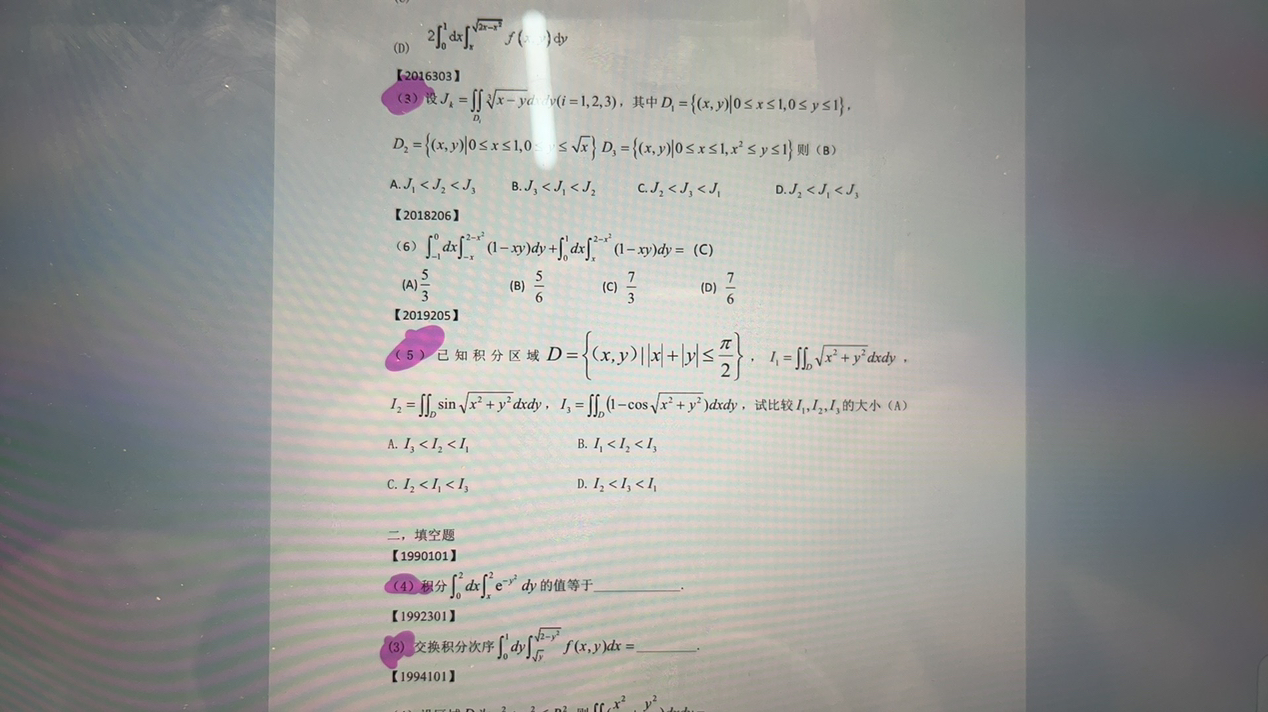 (D) 2∫₀¹dx∫ₓ^√(2x−x²) f(x,y)dy
【2016303】
（3）设 J_k = ∬_{D_i} ∛(x−y)dxdy(i=1,2,3)，其中 D₁ = {(x,y)|0≤x≤1,0≤y≤1}，
D₂ = {(x,y)|0≤x≤1,0≤y≤√x} D₃ = {(x,y)|0≤x≤1,x²≤y≤1} 则（B）
A. J₁<J₂<J₃ B. J₃<J₁<J₂ C. J₂<J₃<J₁ D. J₂<J₁<J₃
【2018206】
（6）∫₋₁⁰dx∫₋ₓ^{2−x²}(1−xy)dy+∫₀¹dx∫ₓ^{2−x²}(1−xy)dy= (C)
(A) 5/3 (B) 5/6 (C) 7/3 (D) 7/6
【2019205】
（5）已知积分区域 D={(x,y)||x|+|y|≤π/2}， I₁=∬_D √(x²+y²)dxdy，
I₂=∬_D sin√(x²+y²)dxdy，I₃=∬_D (1−cos√(x²+y²))dxdy，试比较 I₁,I₂,I₃ 的大小（A）
A. I₃<I₂<I₁ B. I₁<I₂<I₃
C. I₂<I₁<I₃ D. I₂<I₃<I₁
二，填空题
【1990101】
（4）积分∫₀²dx∫ₓ²e^{−y²}dy 的值等于__________.
【1992301】
(3) 交换积分次序∫₀¹dy∫_{√y}^{√(2−y²)} f(x,y)dx=_______.
【1994101】